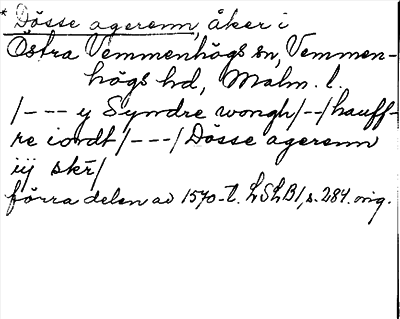 * Dösse agerenn, åker i
Östra Vemmenhögs sn, Vemmen-
högs hd, Malm. l.
/--- y Syndre wongh/--/hauff-
re iordt/---/Dösse agerenn
iij skr/
förra delen av 1570-t. LSLB1, s. 284. orig.